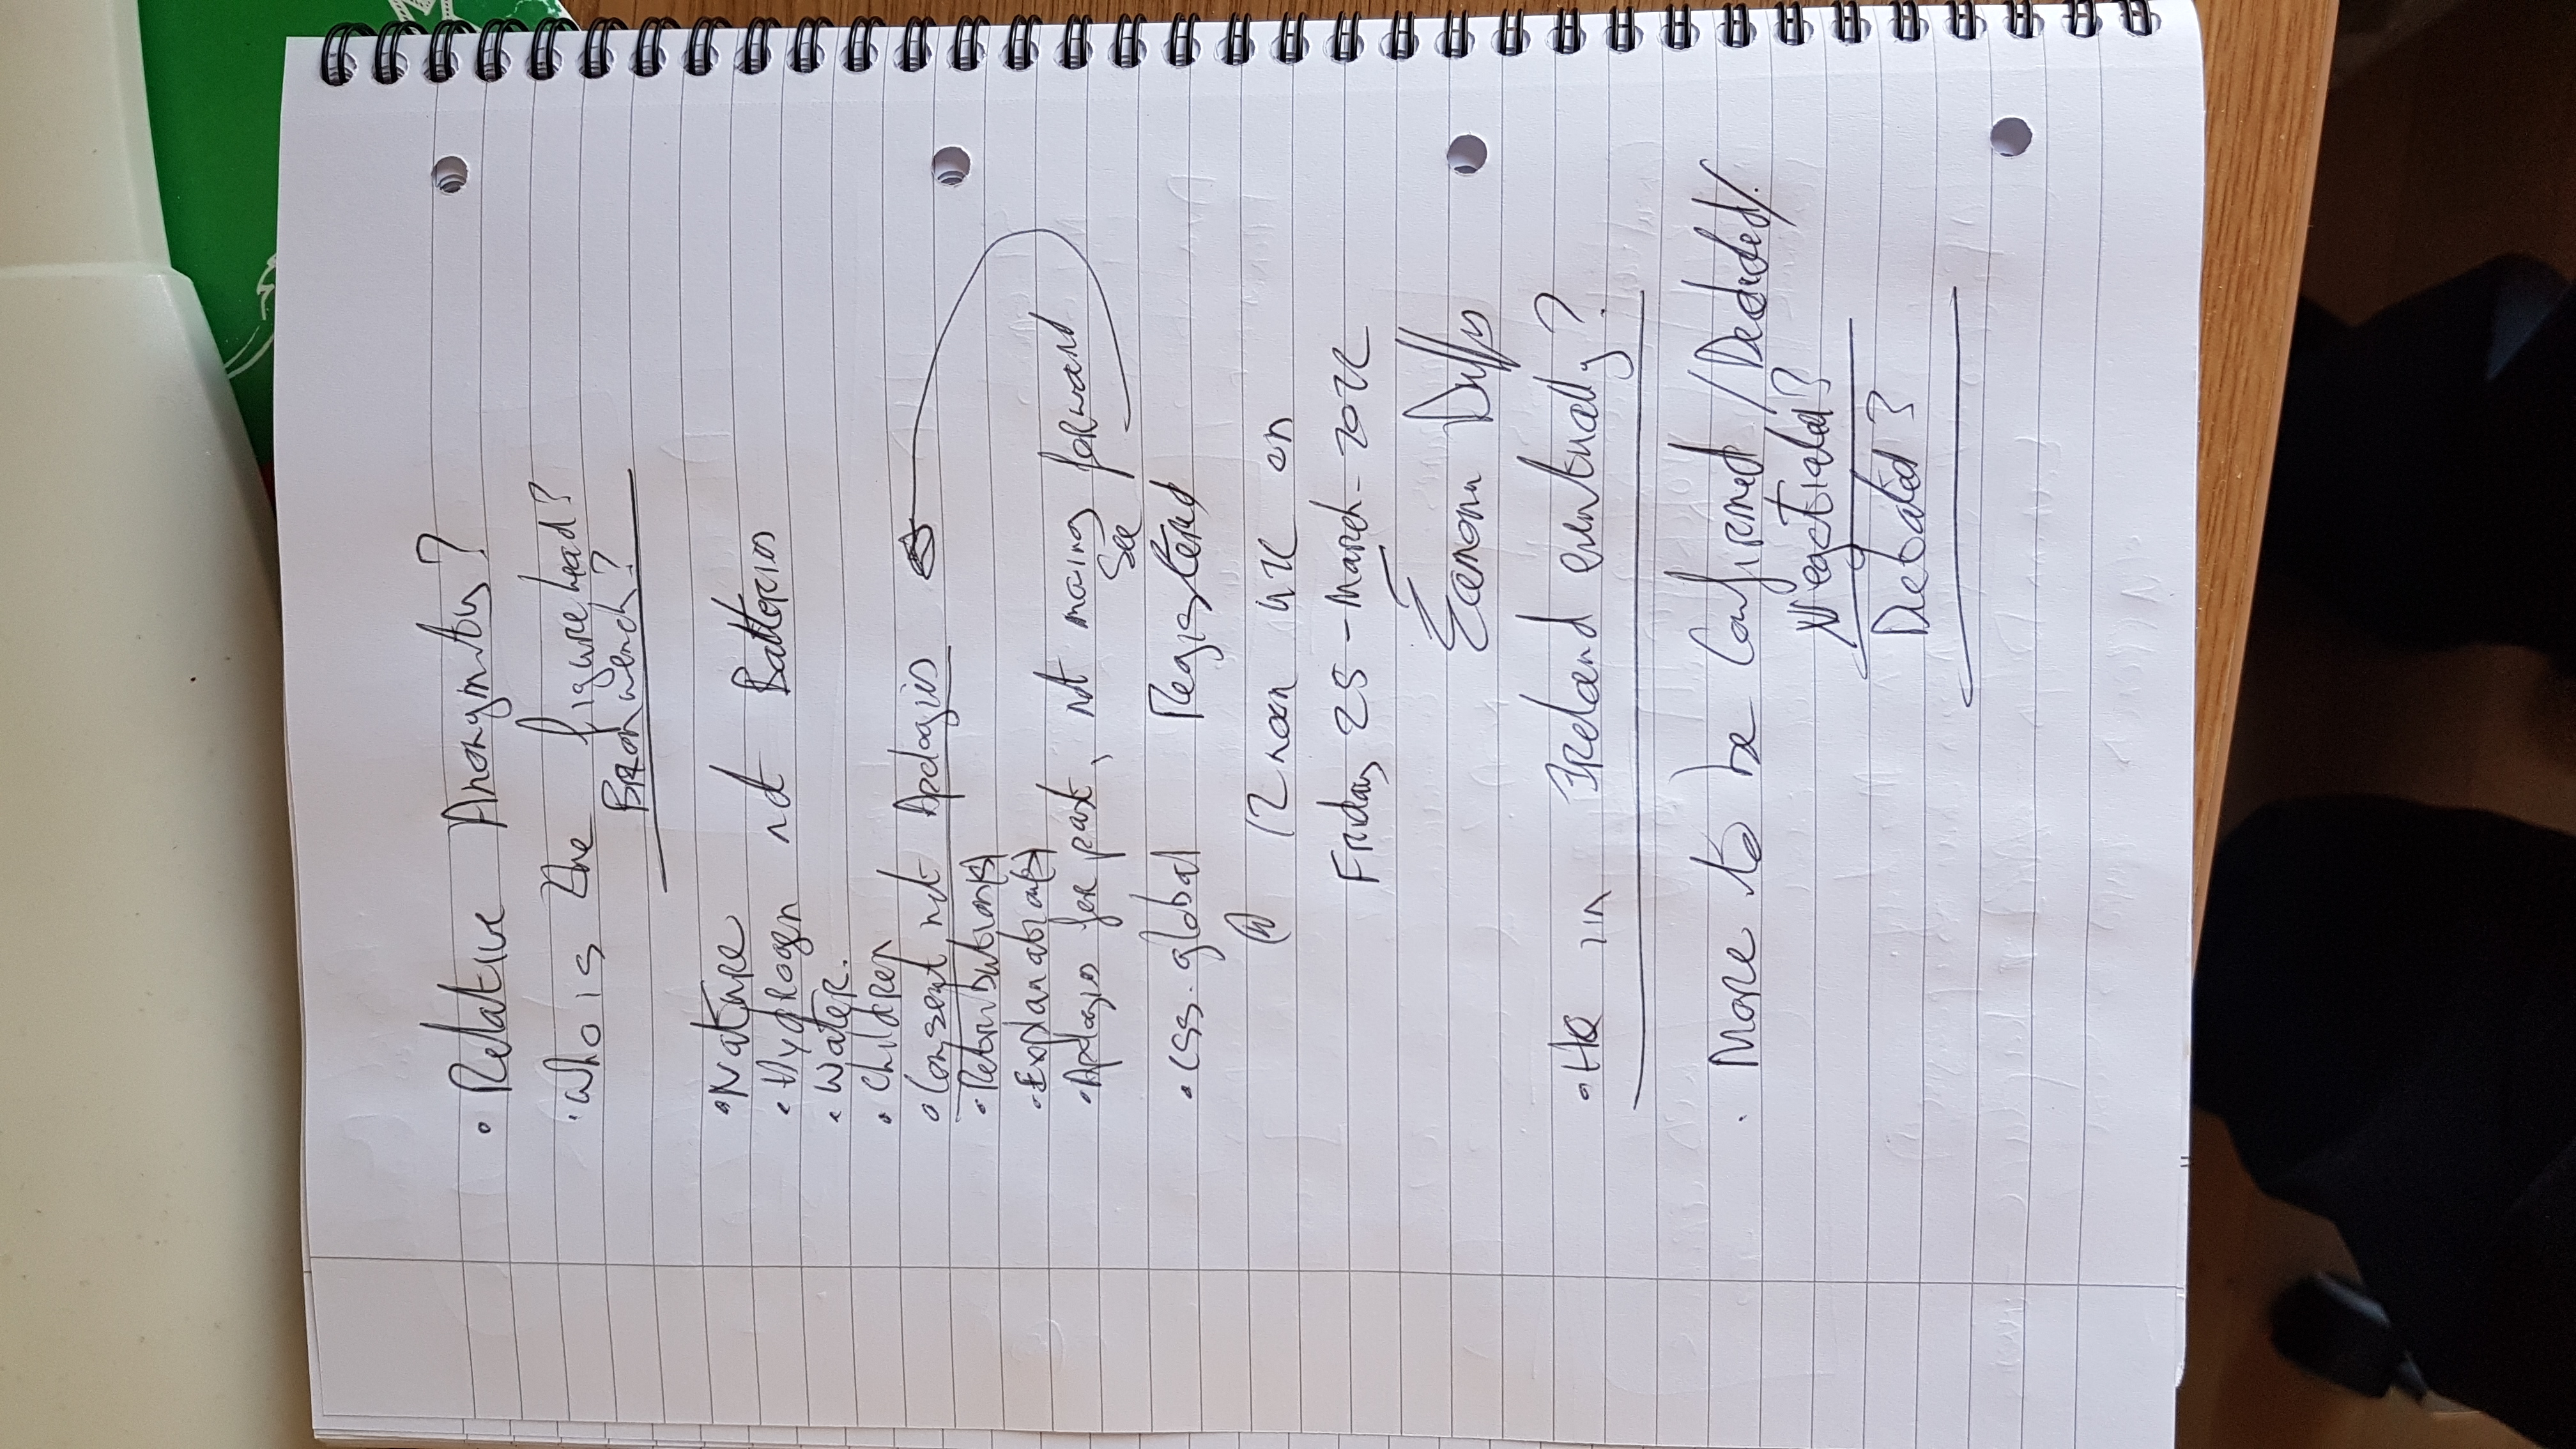 • Relative Anonymity?
• Who is the figurehead?
• Nature
• Hydrogen not Batteries
• Water.
• Children
• Consent not Apologies
• Retribution(s)
• Explanation(s)
• Apologies for past, not moving forward
See
• css.global Registered
@ 12 noon UTC on
Friday 25 - March - 2022
Éamonn Duffy
• HQ in Ireland eventually?
• More to be Confirmed / Decided /
Negotiated?
Debated?